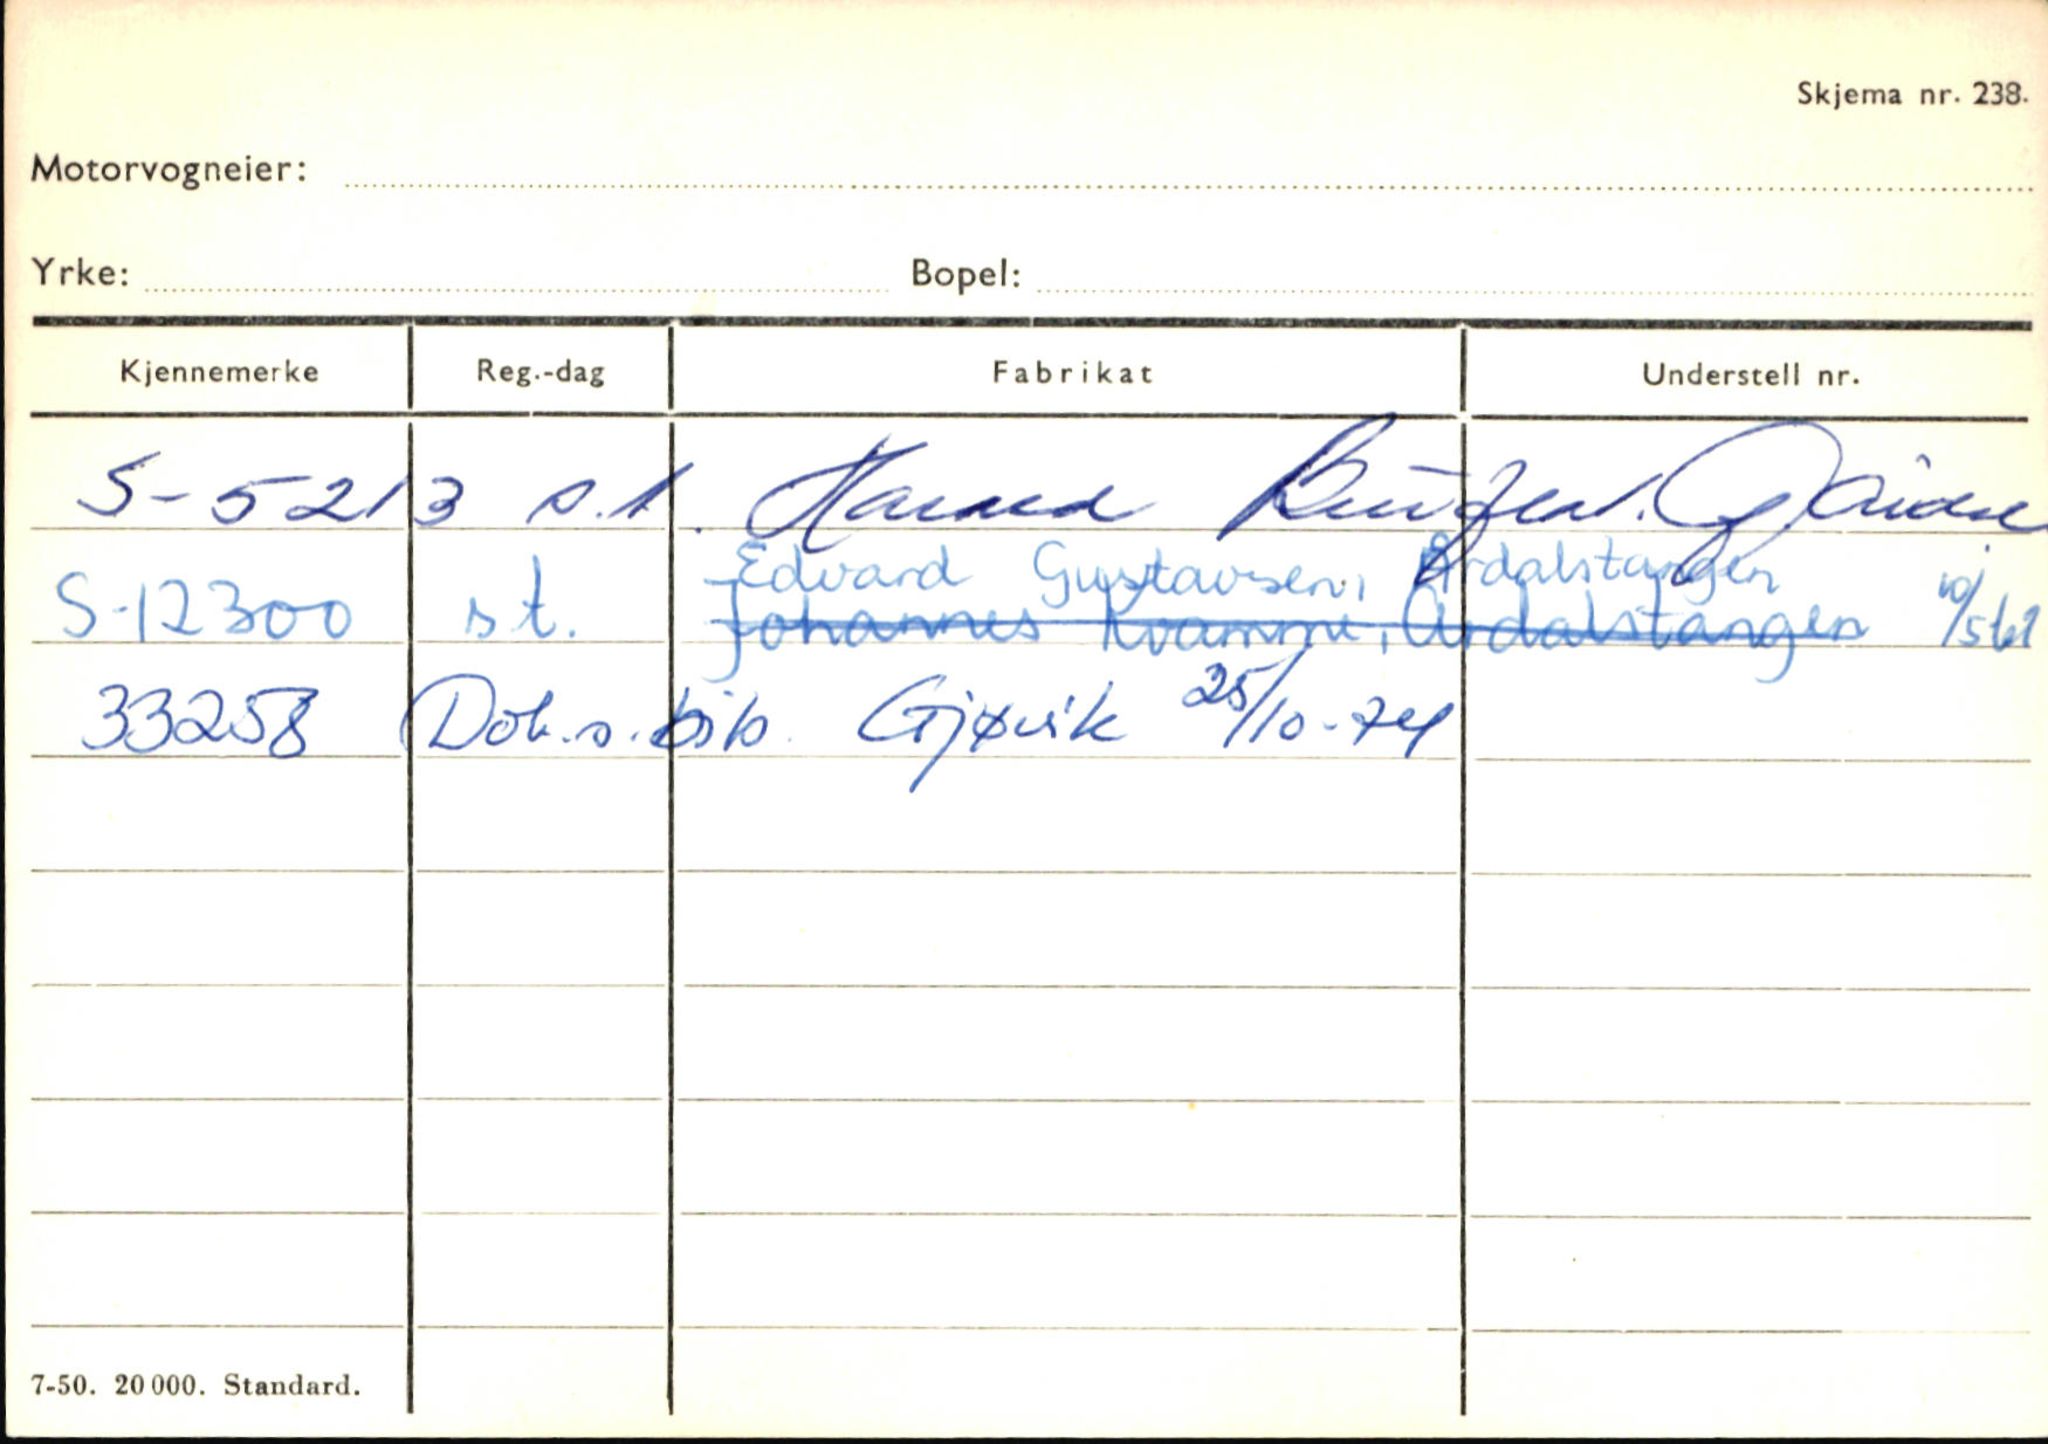 Skjema nr. 238.
Motorvogneier:
Yrke: Bopel:
Kjennemerke Reg.-dag Fabrikat Understell nr.
S-5213 s.t. Harald
Edvard Gustavsen, Årdalstangen
S-12300 st. Johannes Kvamme, Årdalstangen 10/5 61
33258 Dok. s. bil s. Gjøvik 25/10-74
7-50. 20 000. Standard.